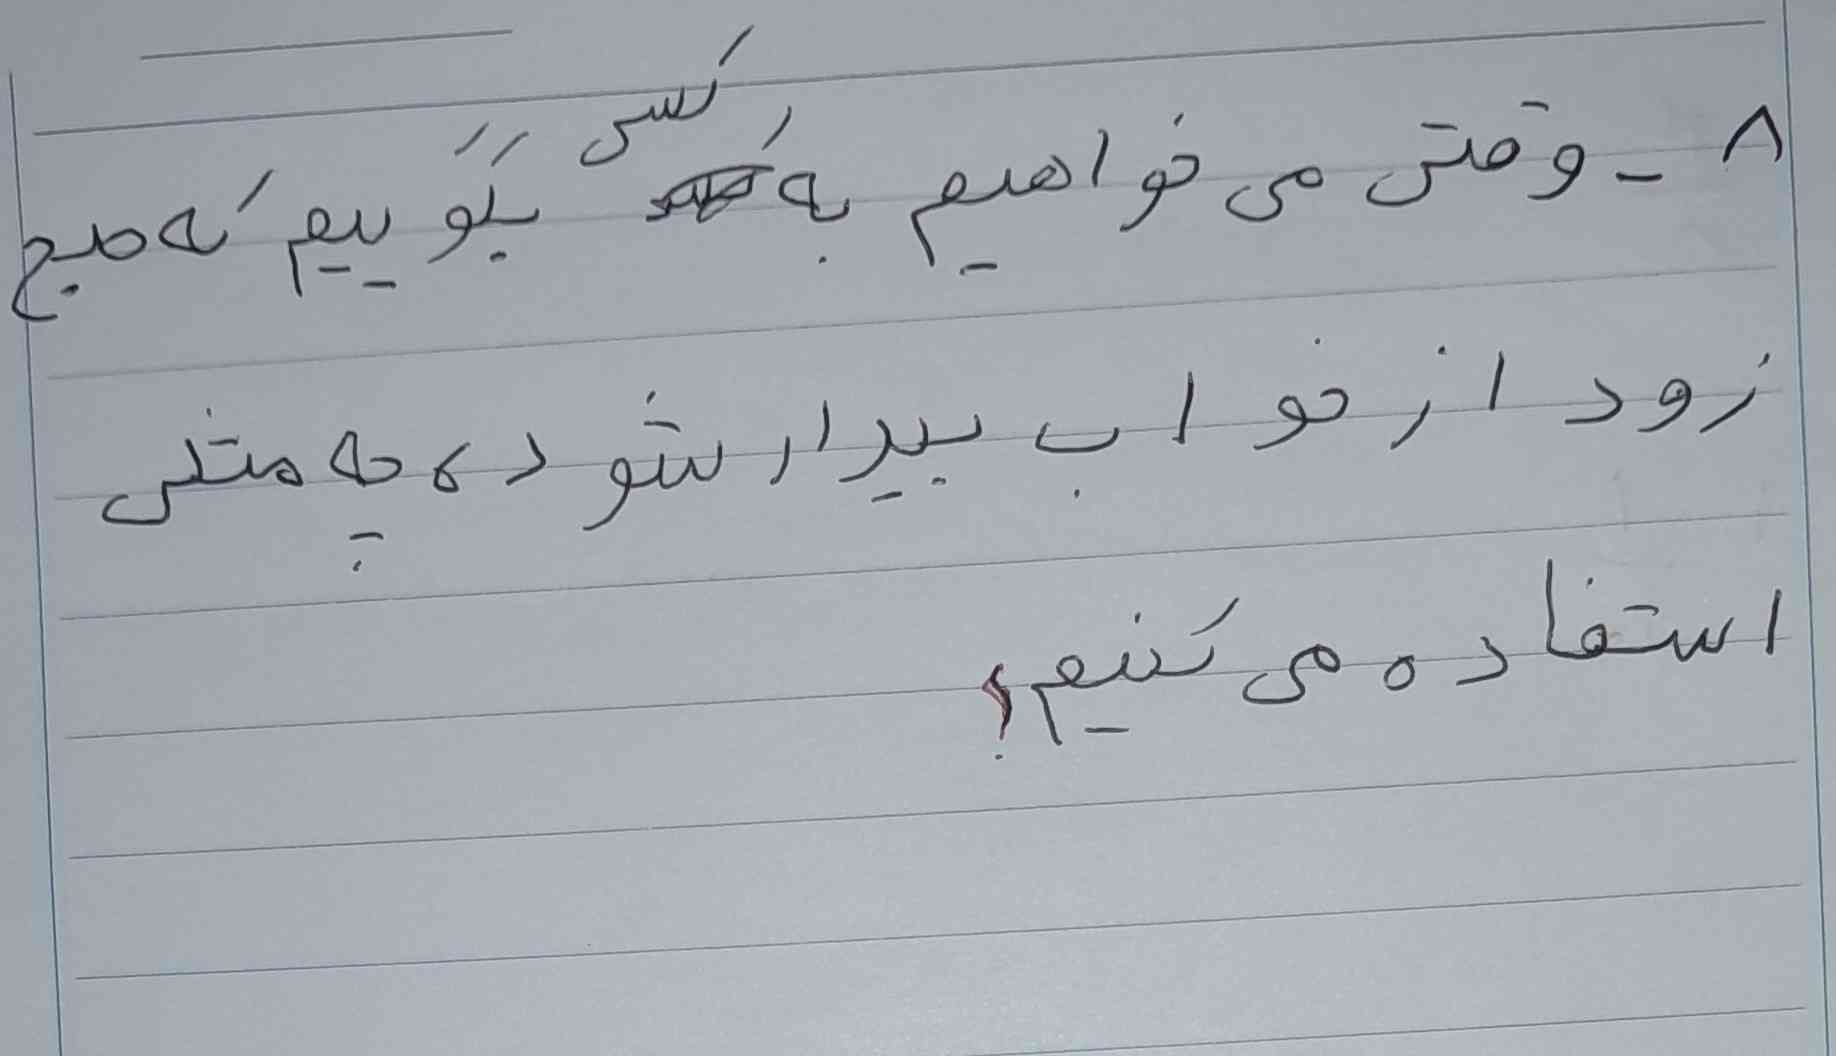 ۸ - وقتی می خواهیم به کسی بگوییم که صبح
زود از خواب بیدار شود، به چه مثلی
استفاده می کنیم؟